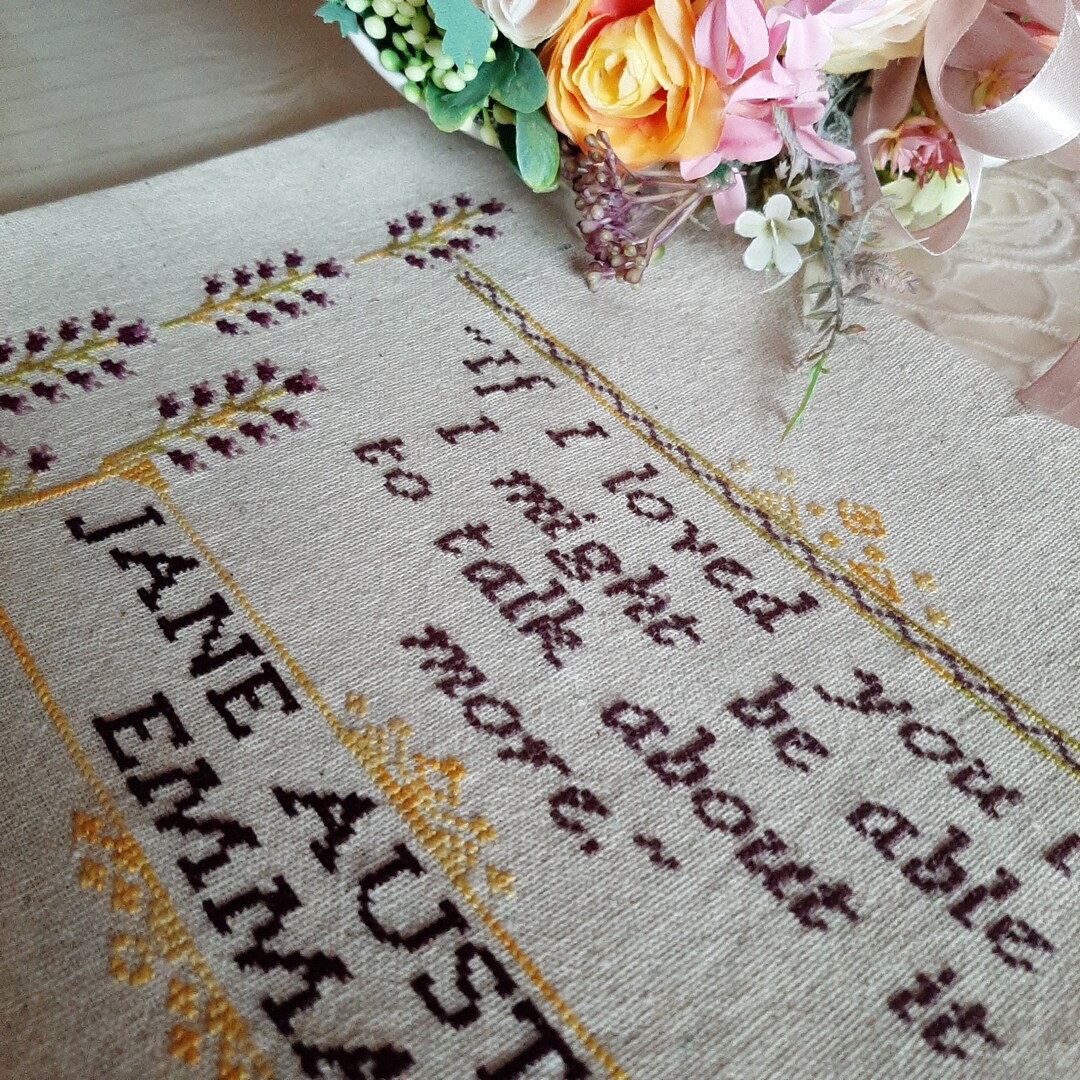 "If I loved you l
I might be able
to talk about it
more."
JANE AUST
EMMA